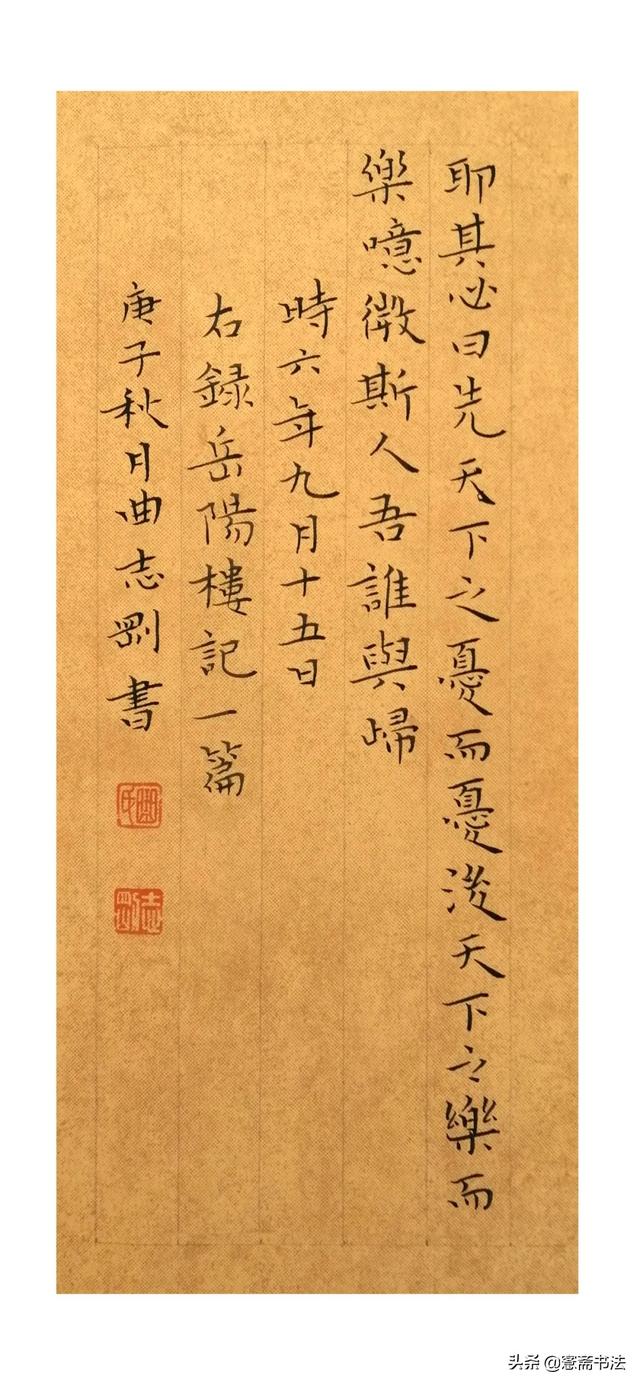 耶其必曰先天下之憂而憂後天下之樂而
樂噫微斯人吾誰與歸
時六年九月十五日
右録岳陽樓記一篇
庚子秋月曲志剛書
曲氏
志剛
头条 @窓斋书法